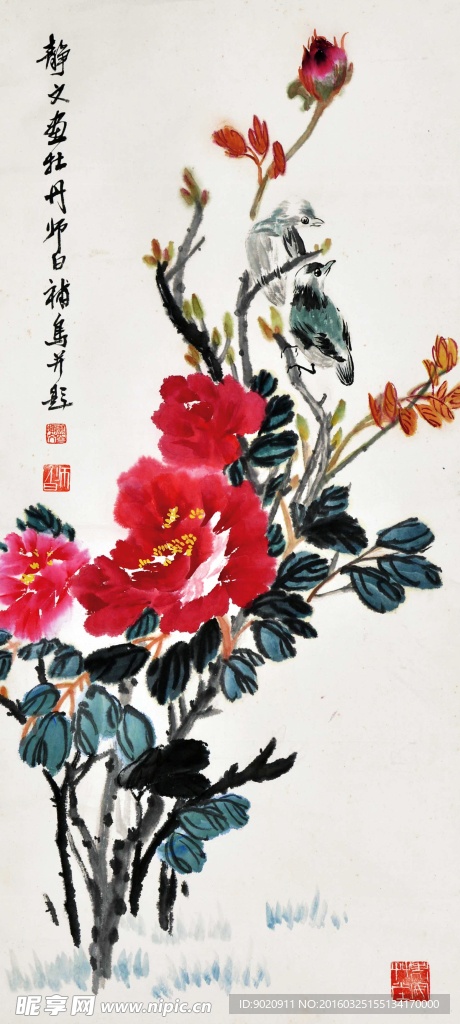 静文画牡丹师白補鳥并题
昵享网 www.nipic.cn
ID:9020911 NO:20160325155134170000